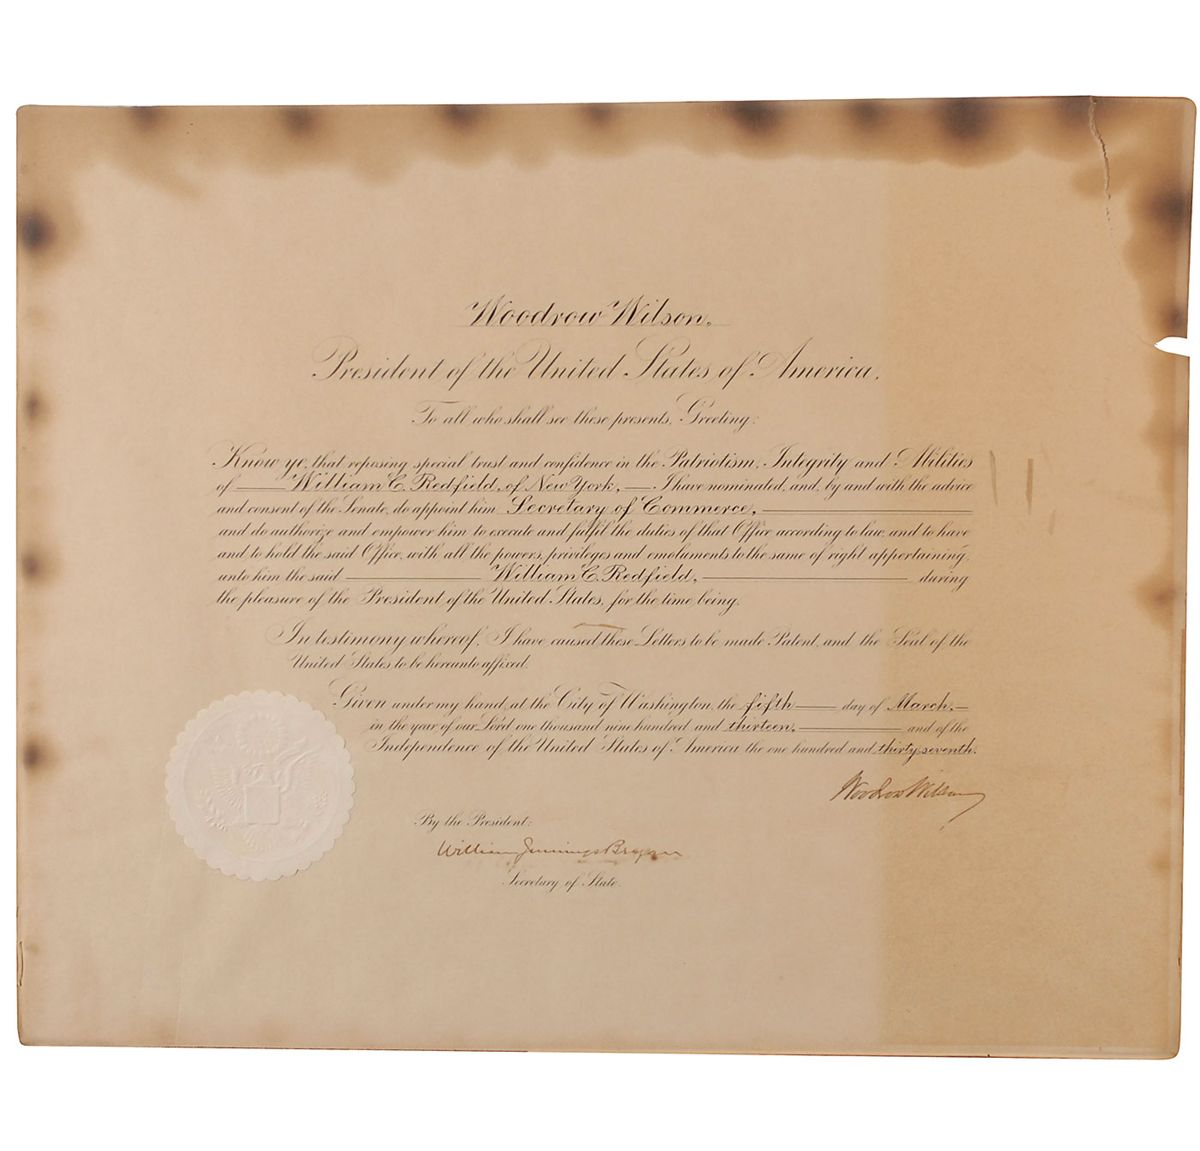 Woodrow Wilson,
President of the United States of America,
To all who shall see these presents, Greeting:
Know ye, that reposing special trust and confidence in the Patriotism, Integrity and Abilities
of William C. Redfield, of New York, I have nominated, and, by and with the advice
and consent of the Senate, do appoint him Secretary of Commerce,
and do authorize and empower him to execute and fulfil the duties of that Office according to law, and to have
and to hold the said Office, with all the powers, privileges and emoluments to the same of right appertaining,
unto him the said William C. Redfield, during
the pleasure of the President of the United States, for the time being.
In testimony whereof, I have caused these Letters to be made Patent, and the Seal of the
United States to be hereunto affixed.
Given under my hand, at the City of Washington, the fifth day of March,
in the year of our Lord one thousand nine hundred and thirteen, and of the
Independence of the United States of America the one hundred and thirty-seventh.
Woodrow Wilson
By the President:
William Jennings Bryan
Secretary of State.